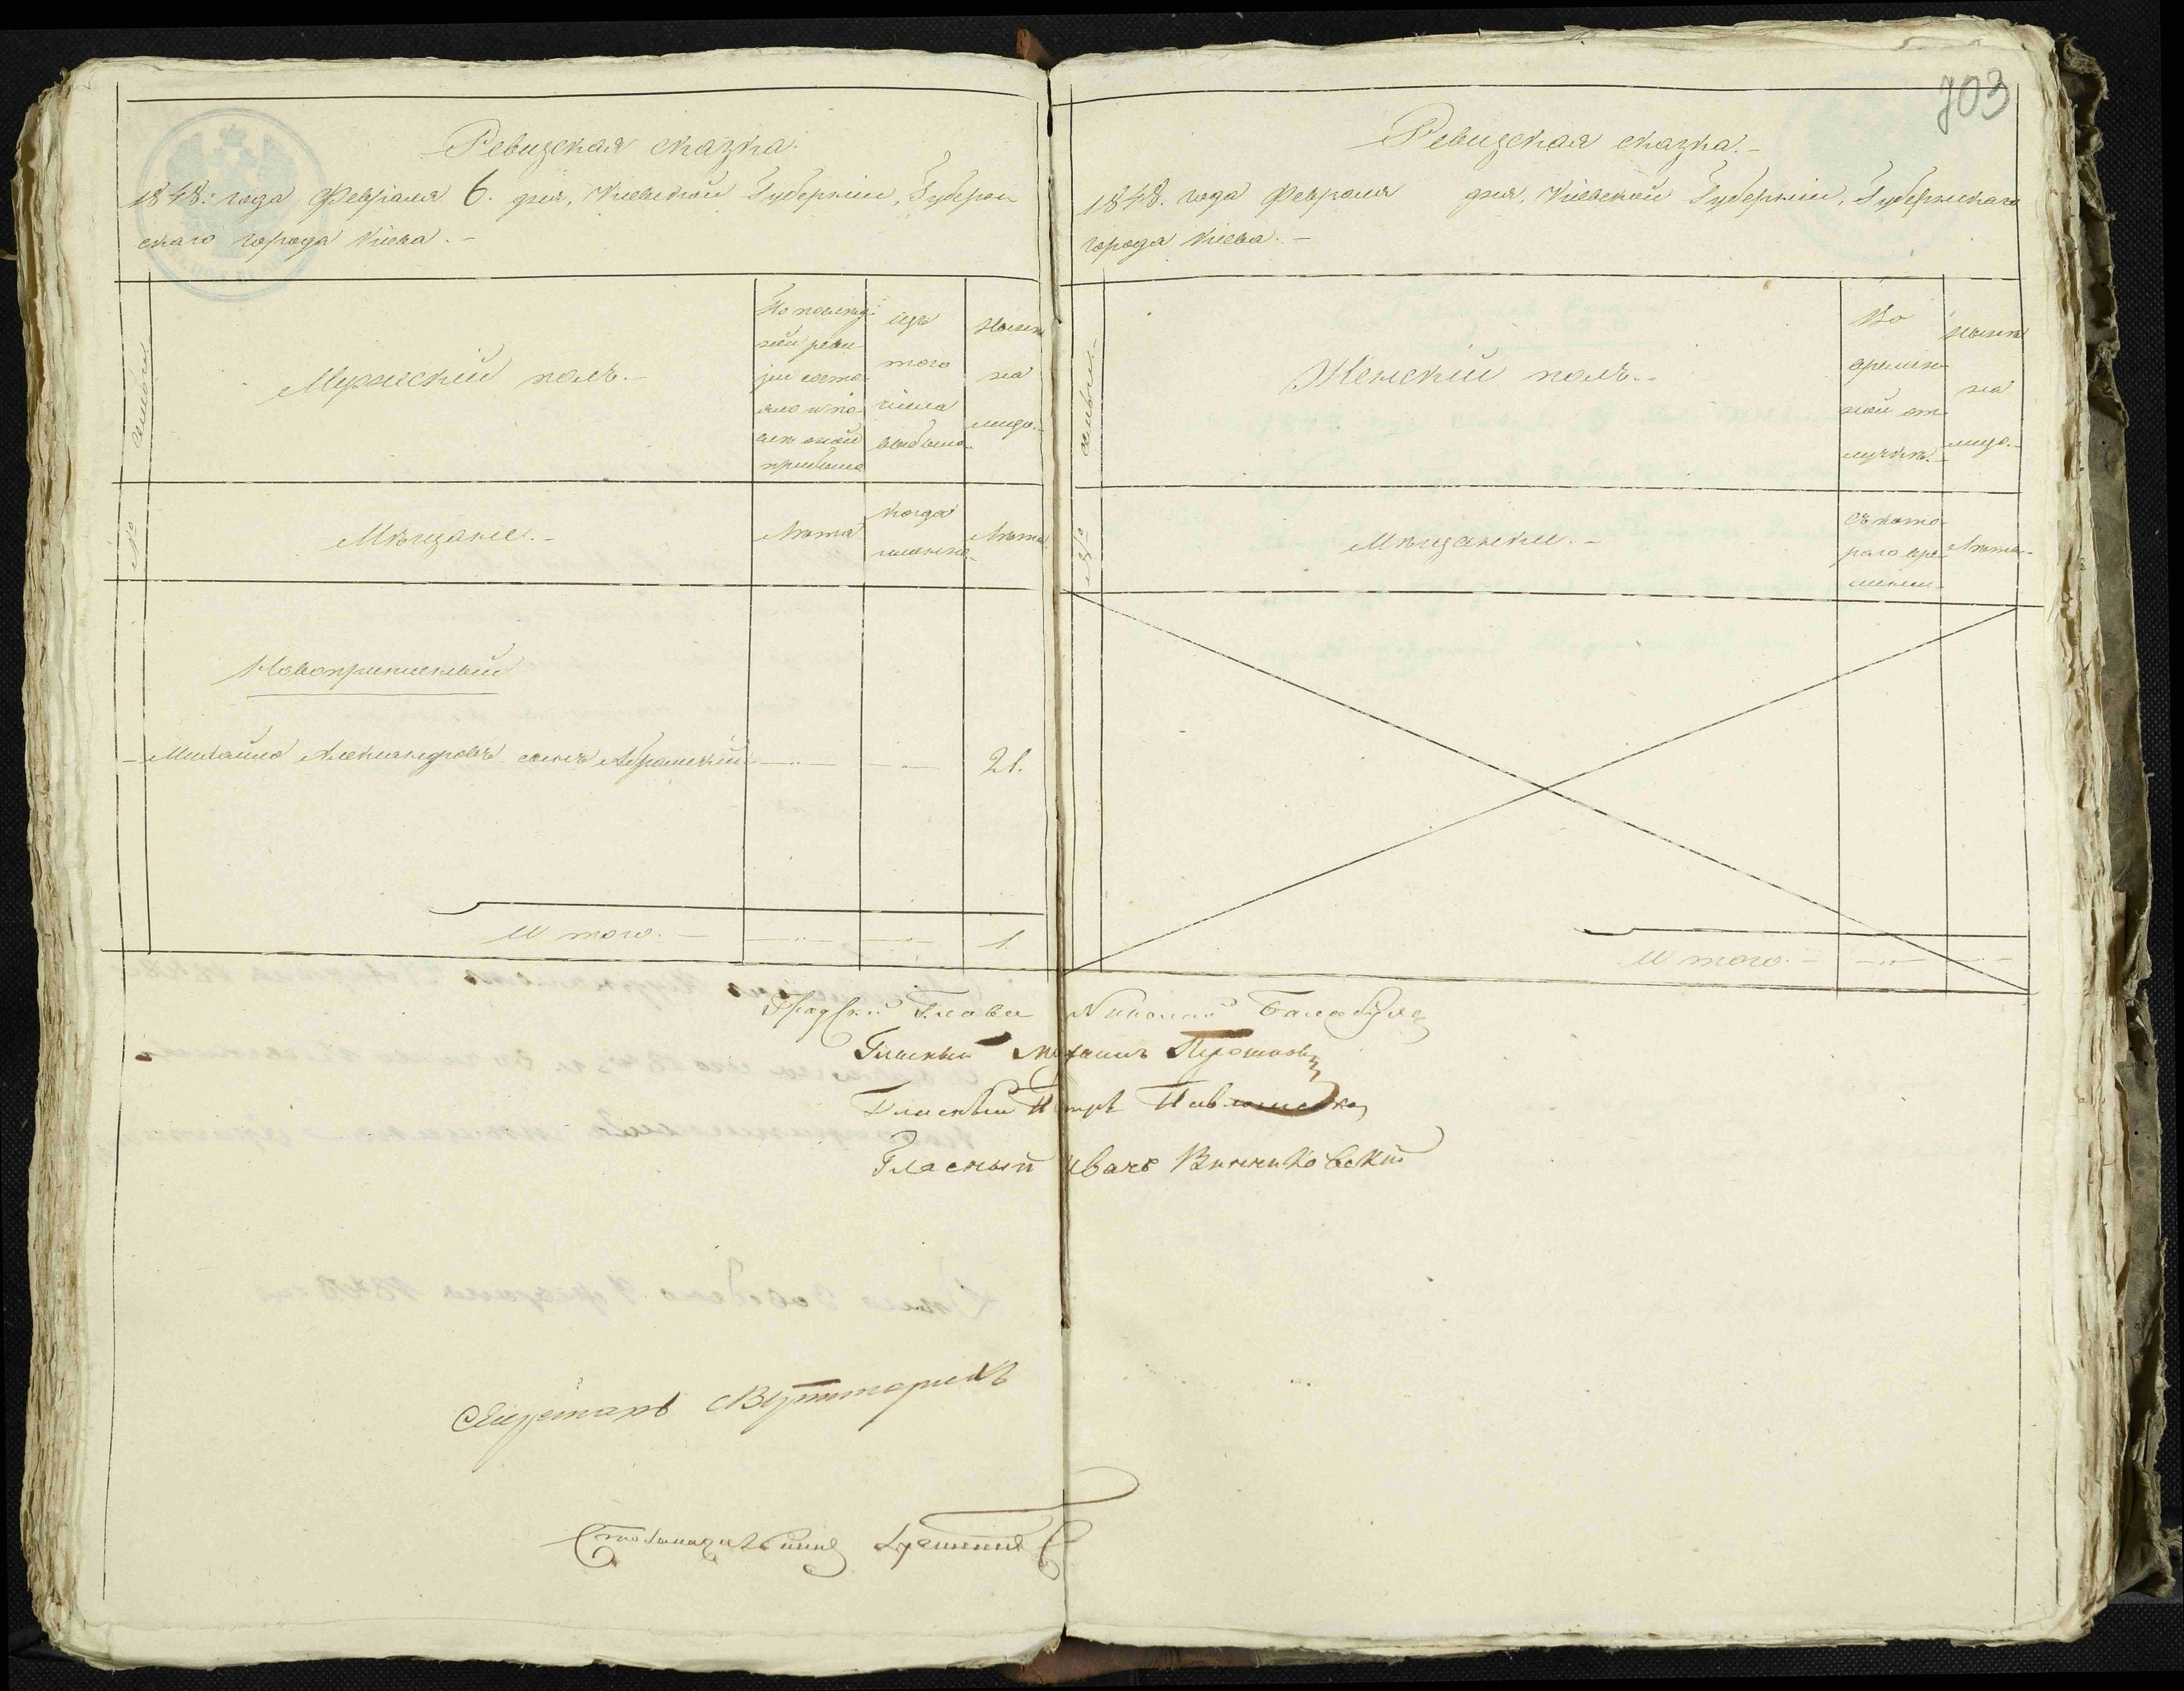 Ревизская сказка.
1848: года Февраля 6. дня, Киевской Губерніи, Губерн
скаго города Киева. -
№ семьи
Мужескій полъ. -
По послѣд-
ней реви
зіи состо
яло и по
слѣ оной
прибыло
изъ
того
числа
выбыло
Нынѣ
на
лицо. -
Мѣщане. -
Лѣта
когда
именно.
Лѣта.
Новоприписный
Михайло Александровъ сынъ Абрамскій
21.
И того. -
1.
703
Ревизская сказка. -
1848. года Февраля дня, Кіевской Губерніи, Губернскаго
города Кіева. -
№ семьи. -
Женскій полъ. -
Во
времен-
ной от-
лучкѣ. -
Нынѣ
на
лицо. -
Мѣщанки. -
Съ кото-
раго вре-
мени. -
Лѣта. -
И того. -
Градскій Глава Николай Балабуха
Гласный Михаилъ
Гласный Петръ
Гласный Иванъ Винниковскій
Секретарь
Столоначальникъ